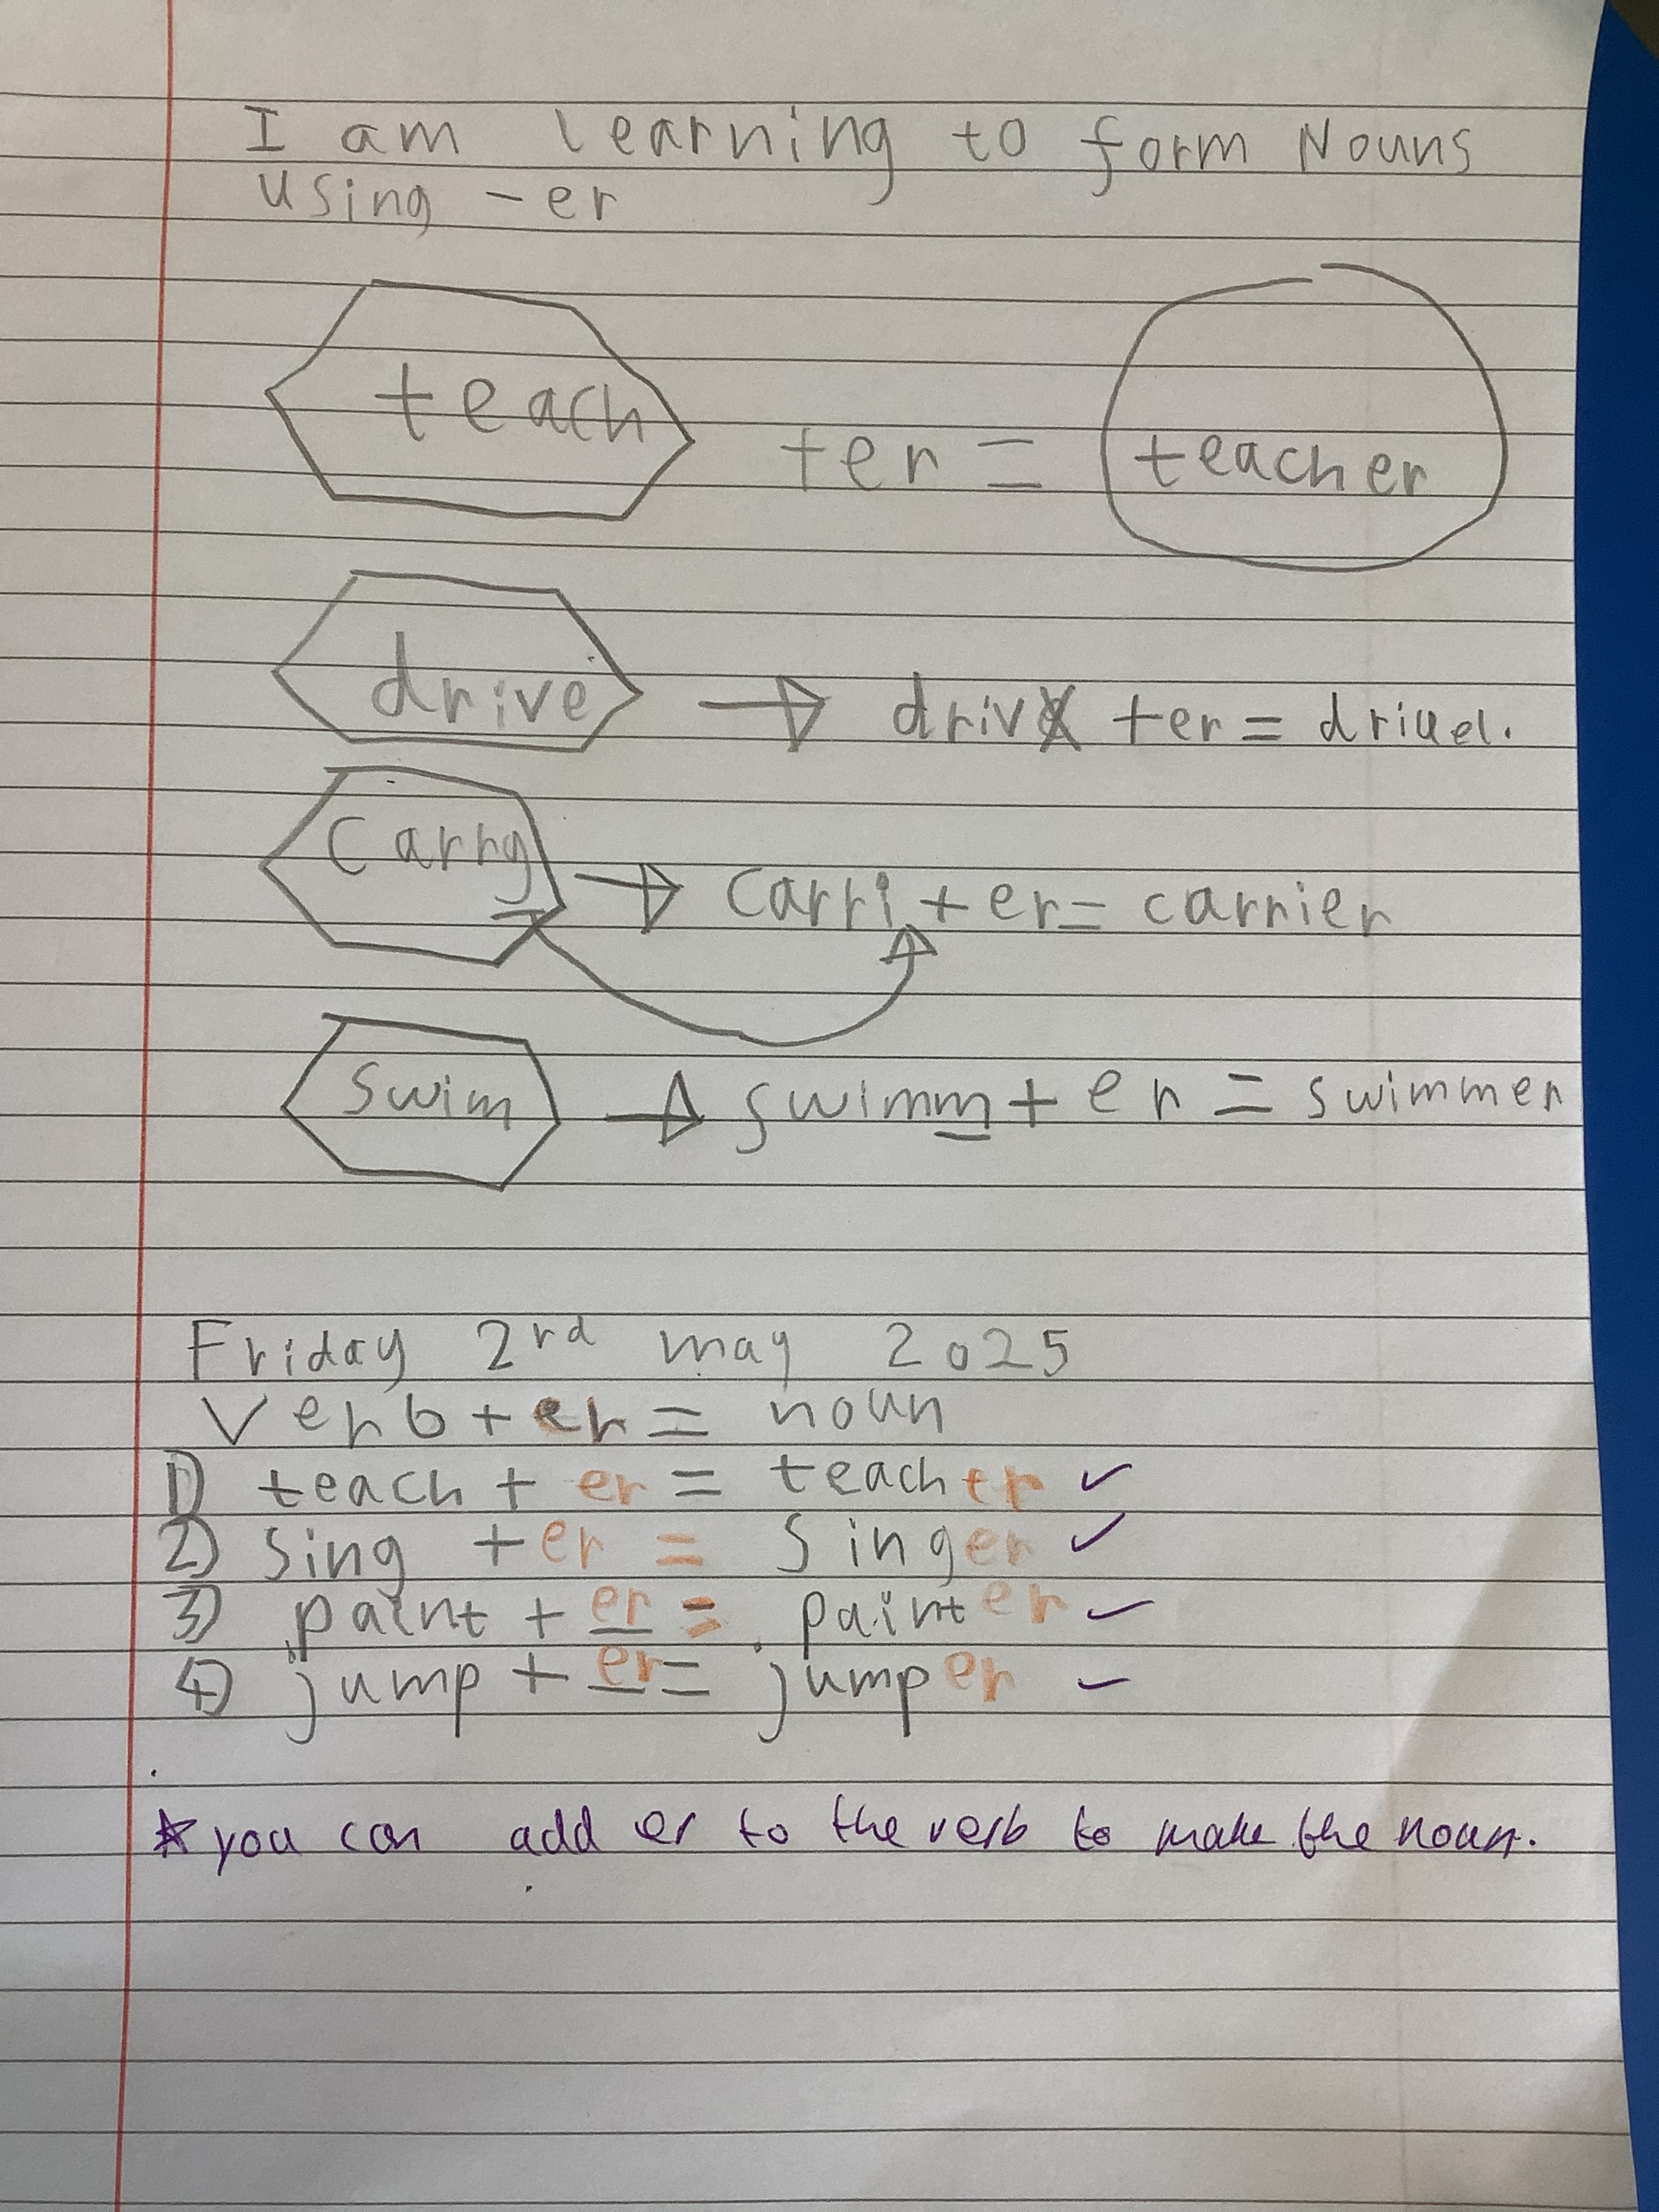 I am learning to form Nouns
using -er
teach +er = teacher
drive → drive +er = drivel.
carry → carri + er = carrier
swim → swimm + er = swimmer
Friday 2rd may 2025
Verb + er = noun
1) teach + er = teacher ✓
2) sing + er = Singer ✓
3) paint + er = painter ✓
4) jump + er = jumper ✓
* you can add er to the verb to make the noun.